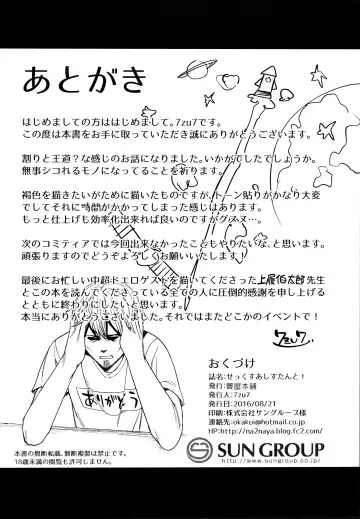 あとがき
はじめましての方ははじめまして。7zu7です。
この度は本書をお手に取っていただき誠にありがとうございます。
割りと王道?な感じのお話になりました。いかがでしたでしょうか。
無事シコれるモノになってることを祈ります。
褐色を描きたいがために描いたものですが、トーン貼りがかなり大変
でしてそれに時間がかかってしまった感じはあります。
もっと仕上げも効率化出来れば良いのですがグヌヌ…。
次のコミティアでは今回出来なかったこどもやりたいな、と思います。
頑張りますのでどうぞよろしくお願いいたします!
最後にお忙しい中超ドエロゲストを描いてくださった上屋佰太郎先生
とこの本を読んでくださっている全ての人に圧倒的感謝を申し上げる
とともに終わりにしたいと思います。
本当にありがとうございました。それではまたどこかのイベントで!
7zu7.
ありがとう
おくづけ
話名:せっくすあしすたんと!
発行:響屋本舗
発行人:7zu7
発行日:2016/08/21
印刷:株式会社サングループ様
連絡先:okakoi@hotmail.co.jp
HP:http://na2naya.blog.fc2.com/
本書の無断転載、無断複製は禁止です。
18歳未満の閲覧も許可しません。
SUN GROUP
http://www.sungroup.co.jp/